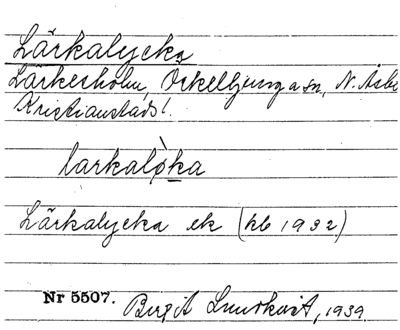 Lärkalycka
Lärkesholm, Örkelljunga sn, N. Åsbo
Kristianstads l.
larkalø̀ka
Lärkalycka ek (hb 1932)
Nr 5507. Birgit Lundkvist, 1939